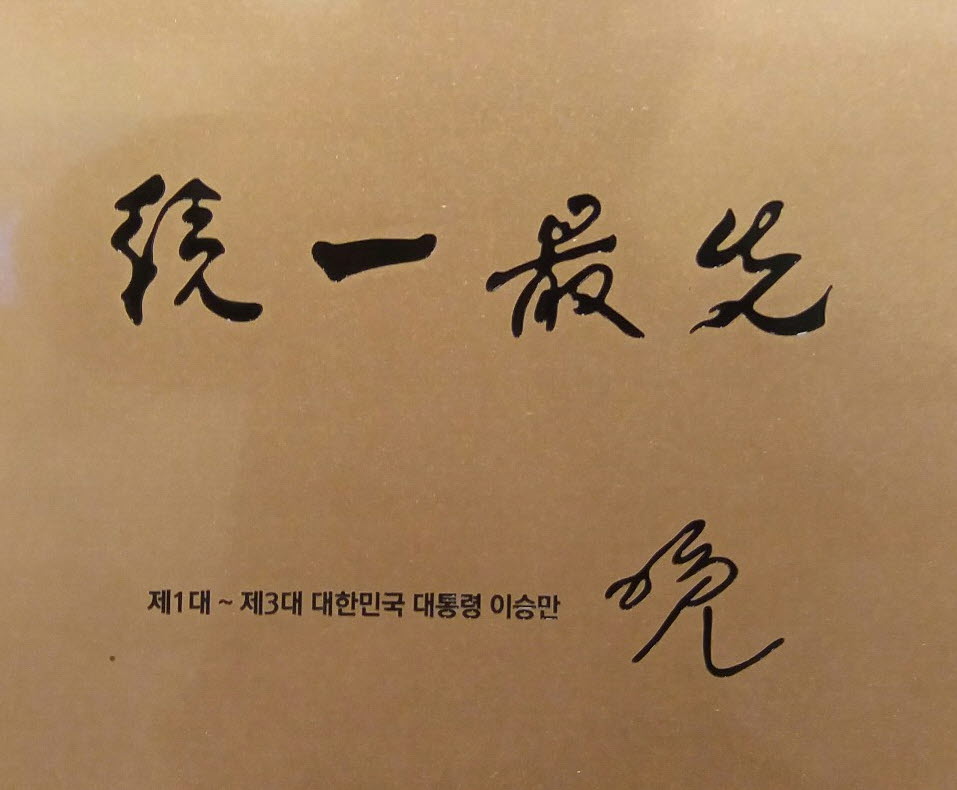 統一最先
제1대 ~ 제3대 대한민국 대통령 이승만
晩